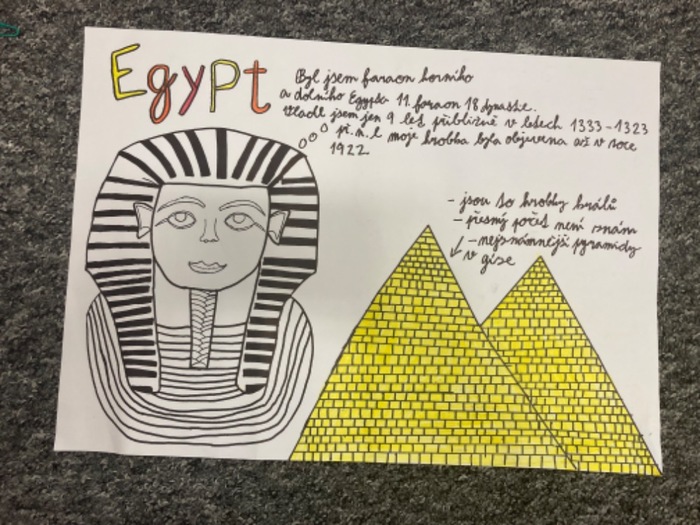 Egypt
Byl jsem faraon horního
a dolního Egypta 11. faraon 18 dynastie.
Vládl jsem jen 9 let přibližně v letech 1333-1323
př.n.l moje hrobka byla objevena až v roce
1922
- jsou to hrobky králů
- přesný počet není znám
- nejznámnější pyramidy
v gíse